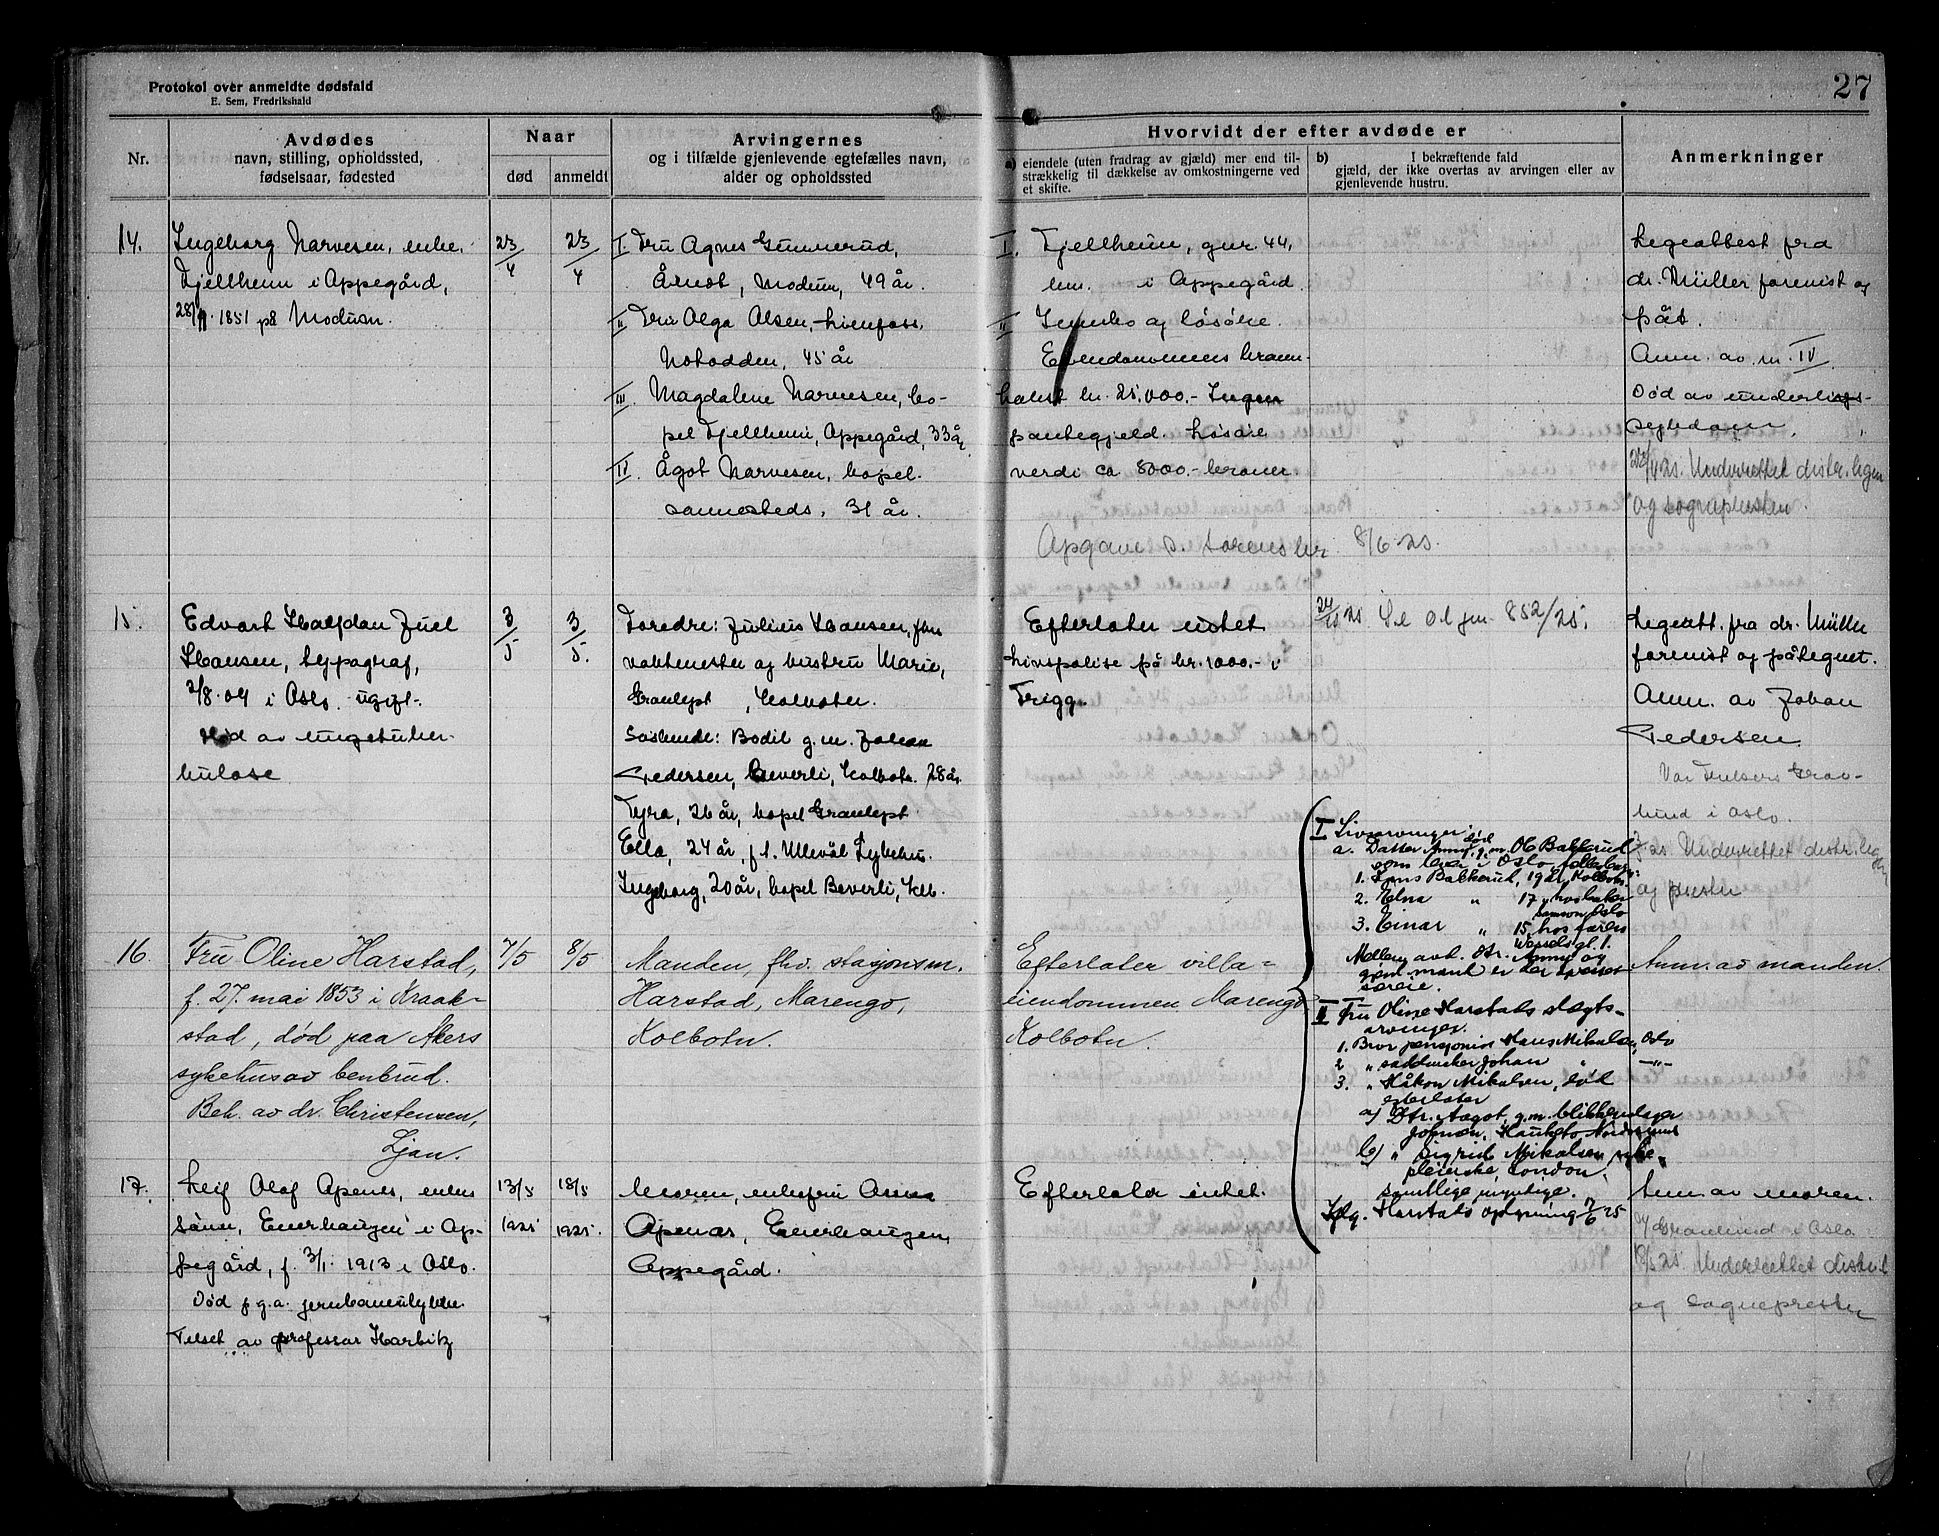 Protokol over anmeldte dødsfald
E. Sem, Fredrikshald
27
Nr.
Avdødes
navn, stilling, opholdssted,
fødselsaar, fødested
Naar
død
anmeldt
Arvingernes
og i tilfælde gjenlevende egtefælles navn,
alder og opholdssted
Hvorvidt der efter avdøde er
a) eiendele (uten fradrag av gjæld) mer end til-
strækkelig til dækkelse av omkostningerne ved
et skifte.
b) I bekræftende fald
gjæld, der ikke overtas av arvingen eller av
gjenlevende hustru.
Anmerkninger
14.
Ingeborg Narvesen, enke.
Fjellheim i Oppegård,
1851 på Modum.
23/4
23/4
I. Fru Agnes Gunnerud,
Åmot, Modum, 49 år.
II Fru Olga Olsen, Lienfoss,
Notodden, 45 år
III Magdalene Narvesen, bo-
pel Fjellheim, Oppegård, 33 år
IV Ågot Narvesen, bopel.
sammesteds, 31 år.
I. Fjellheim, gnr. 44,
bnr. i Oppegård.
II Innbo og løsøre.
Eiendommens brann-
takst kr. 25.000.- Ingen
pantegjeld. Løsøre
verdi ca 8000.- kroner
Opgave s. 8/6 25.
Legeattest fra
dr. Müller forevist og
påt.
Anm. av nr. IV
Død av underlivs-
sygdom.
Underrettet distr. legen
og sognepresten.
15.
Edvart Halfdan Juel
Hansen, typograf,
2/8.04 i Oslo. ugift.
Død av lungetuber-
kulose
3/5
3/5.
Foredre: Julius Hansen, fhv
vaktmester og hustru Marie,
Granlyst, Kolbotn.
Søskende: Bodil g.m. Johan
Pedersen, Beverli, Kolbotn. 28 år
Tyra, 26 år, bopel Granlyst
Ella, 24 år, f.t. Ullevål Sykehus.
Ingeborg, 20 år, bopel Beverli, Kolb.
Efterlater intet
Livspolise på kr. 1000.- i
Frigg.
25 Se jnr 852/25.
Legeatt. fra dr. Müller
forevist og påtegnet.
Anm. av Johan
Pedersen.
Var Frelsers Grav-
lund i Oslo.
25 Underrettet distr. legen
og presten
I Livsarvinger
a. Datter Anny, død g.m. O. Bakkerud
som lever i Oslo, efterlater:
1. Bakkerud, 19 år, Kolbotn
2. Elna " 17, hos baker
Samson Oslo
3. Einar " 15, hos faren
Wesselsgt. 1.
Mellem avd. dtr. Anny og
gjenl. mand er der
særeie.
II Fru Oline Harstads slegts-
arvinger.
1. Bror pensjonist Hans Mikalsen, Oslo
2. " Johan " —"—
3. " Håkon Mikalsen, død
efterlater
a) Dtr. Aagot, g.m. blikkenslager
Johnsen, Hauketo, Nordstrand
b) " Sigrid Mikalsen syke-
pleierske London.
Samtlige myndige.
Harstads oplysning 7/6 25
16.
Fru Oline Harstad,
f. 27. mai 1853 i Kraak-
stad, død paa Akers
sykehus av benbrud.
Beh. av dr. Christensen,
Ljan.
7/5
8/5
Manden, fhv. stasjonsm.
Harstad, Marengo,
Kolbotn.
Efterlater villa=
eiendommen Marengo
Kolbotn.
Anm. av manden.
17.
Leif Olaf Apenes, enkes
sønn, Einerhaugen i Op-
pegård, f. 3/1. 1913 i Oslo.
Død p.g.a. jernbaneulykke.
Tilset av professor Harbitz
13/5
1925
18/5
1925.
Moren, enkefru Anna
Apenes, Einerhaugen,
Oppegård.
Efterlater intet.
Anm. av moren.
Gravlund i Oslo.
18/5 25. Underrettet distr.l
og Sogneprest